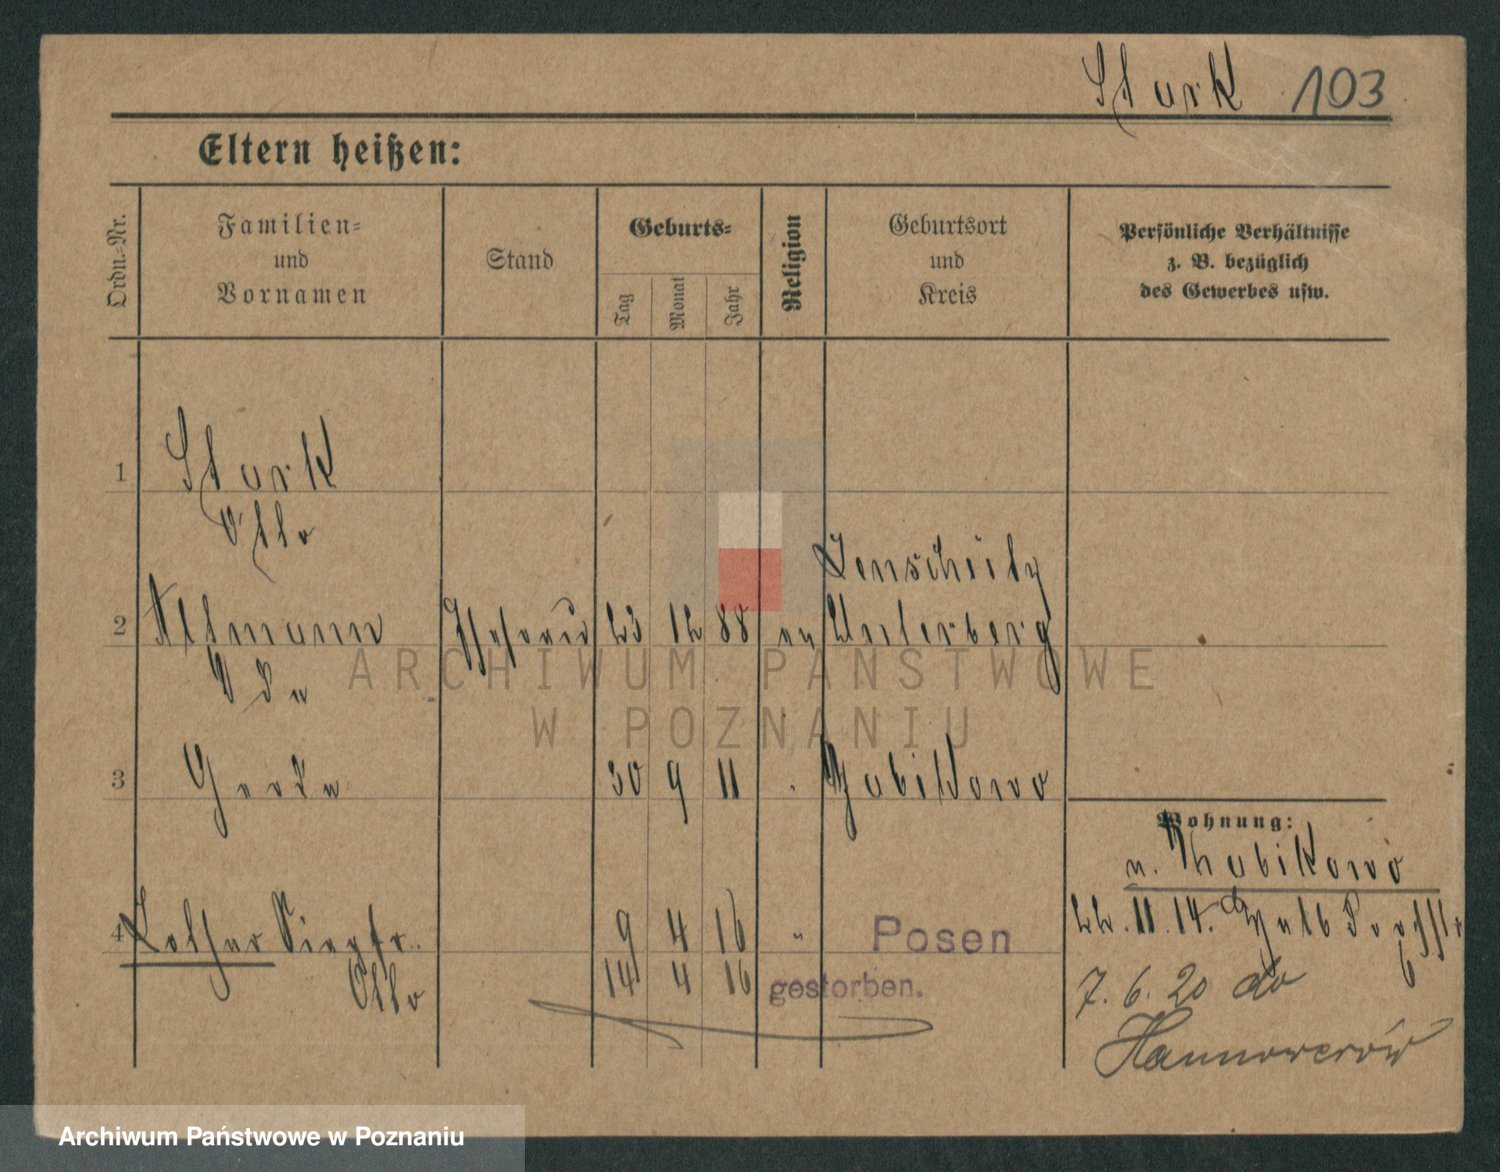 Stark 103
Eltern heißen:
Ordn.-Nr.
Familien-
und
Vornamen
Stand
Geburts-
Tag
Monat
Jahr
Religion
Geburtsort
und
Kreis
Persönliche Verhältnisse
z. B. bezüglich
des Gewerbes usw.
1 Stark
Otto
2 Altmann Ehefrau 23 12 88 ev Unterberg
Ida
3 Gerda 30 9 11 Zabikowo
Wohnung:
n. Zabikowo
4 Lothar Siegfr. 9 4 16 " Posen 22. 11. 14.
Otto 14 4 16 gestorben. 7. 6. 20 do
Hannowerów
ARCHIWUM PAŃSTWOWE
W POZNANIU
Archiwum Państwowe w Poznaniu